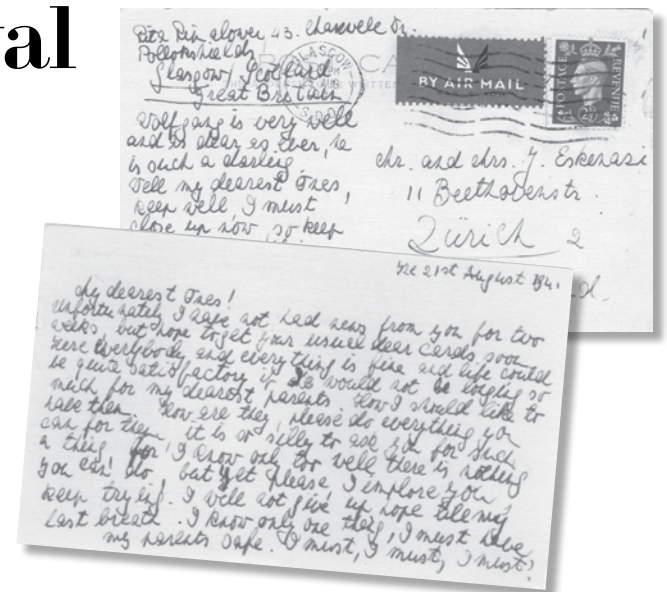 val
43.
Pollokshields
Glasgow, Scotland
Great Britain
GLASGOW
BY AIR MAIL
POSTAGE REVENUE
2½
Wolfgang is very well
and as dear as ever, he
is such a darling.
Well my dearest Ones,
keep well, I must
close up now, so keep
Mr. and Mrs. J. Eskenasi
11 Beethovenstr.
Zürich 2
The 21st August 194
My dearest Ones!
Unfortunately I have not had news from you for two
weeks, but hope to get your usual dear cards soon
Here everybody and everything is fine and life could
be quite satisfactory if would not be longing so
much for my dearest parents How I should like to
have them. How are they, please do everything you
can for them it is so silly to ask you for such
a thing for, I know only too well there is nothing
you can do, but yet please I implore you,
keep trying. I will not give up hope till my
last breath. I know only one thing, I must have
my parents safe. I must, I must, I must!